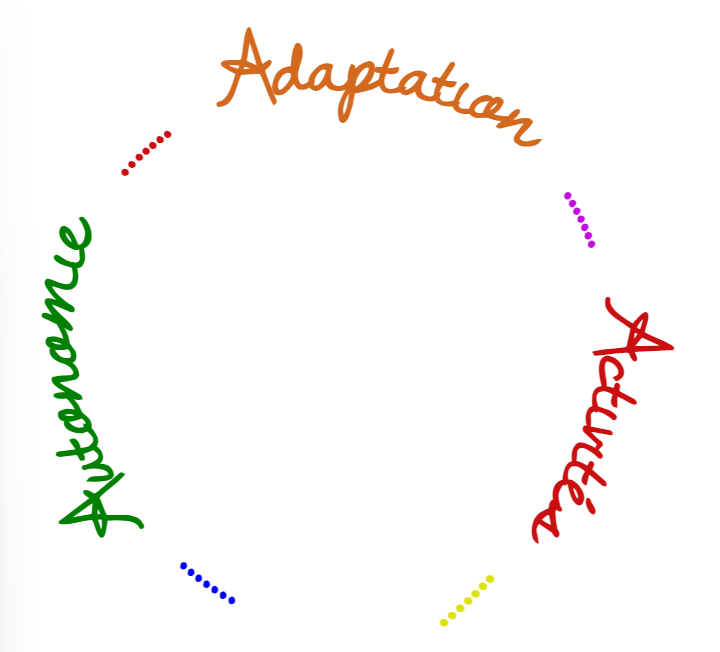 Adaptation
Activités
Autonomie